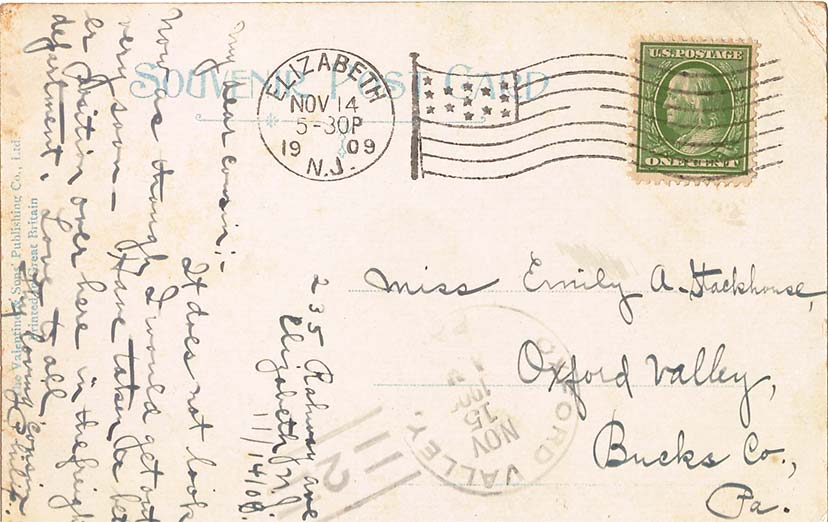 SOUVENIR POST CARD
ELIZABETH
NOV 14
5-30P
19 09
N.J.
U.S. POSTAGE
ONE CENT
Miss Emily A. Stackhouse,
Oxford Valley,
Bucks Co.,
Pa.
OXFORD VALLEY.
NOV
15
PA
2
235 Rahway Ave
Elizabeth N.J.
11/14/09.
My dear cousin;-
It does not look
now as though I would get out
very soon - Have taken
er position over here in the freigh
department. Love to all
Cousin
The Valentine & Sons Publishing Co., Ltd
Printed in Great Britain